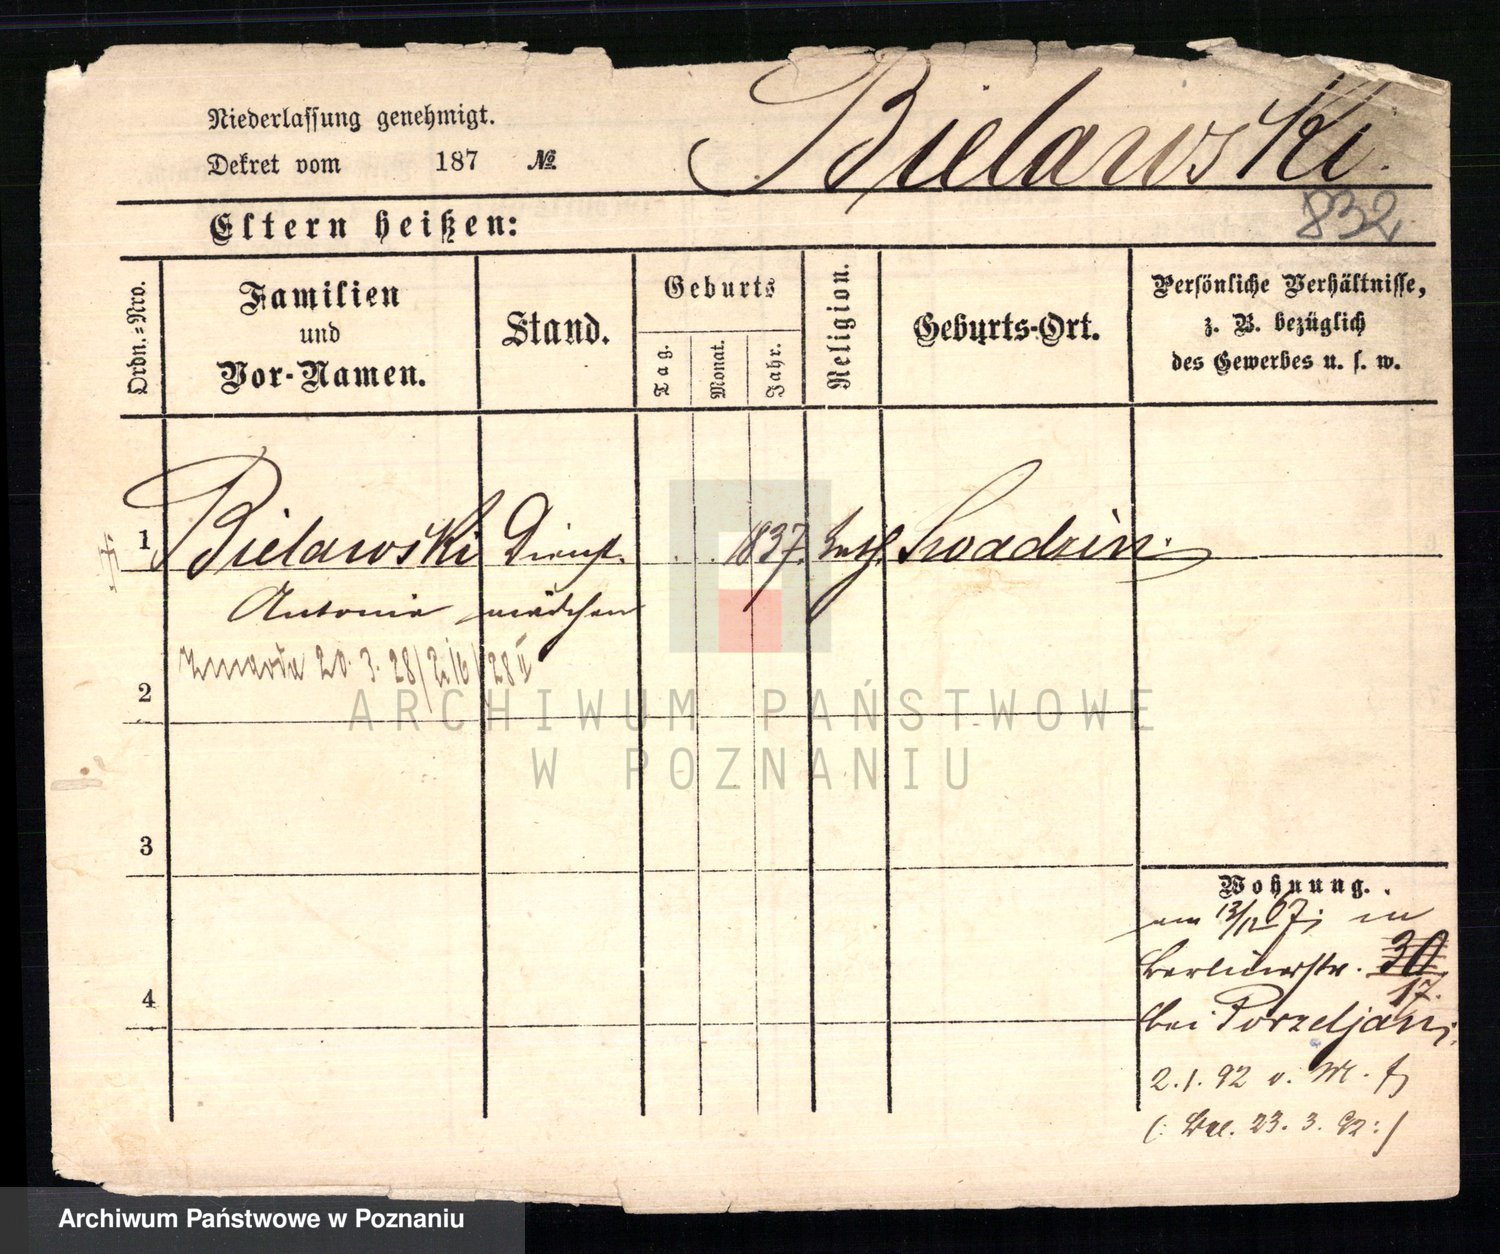 Niederlassung genehmigt.
Dekret vom 187 №
Bielawski.
832
Eltern heißen:
Ordn.-Nro.
Familien
und
Vor-Namen.
Stand.
Geburts
Tag.
Monat.
Jahr.
Religion.
Geburts-Ort.
Persönliche Verhältnisse,
z. B. bezüglich
des Gewerbes u. s. w.
1 Bielawski Dienst 1837. kath. Swadzin.
Antonie mädchen
zmarła 20. 3. 28
2
3
4
Wohnung.
am 13/12 67; in
Berlinerstr. 30
17.
bei Porzeljan;
2. 1. 92 v. M.
23. 3. 92
ARCHIWUM PAŃSTWOWE
W POZNANIU
Archiwum Państwowe w Poznaniu